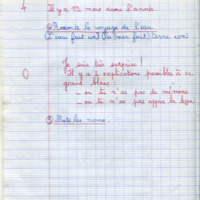 4 Il y a 12 mois dans l'année
② Raconte le voyage de l'eau.
L'eau fait
la mer
fait
Terre
0 Je suis très surprise !
Il y a 2 explications possibles à ce
grand blanc :
- ou tu n'as pas de mémoire
- ou tu n'as pas appris la leçon
③ les noms